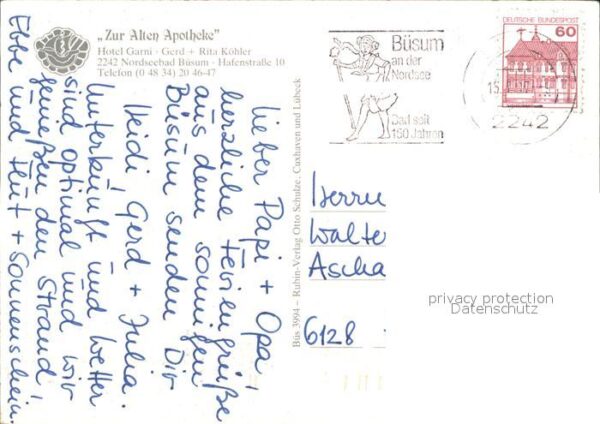 „Zur Alten Apotheke”
Hotel Garni · Gerd + Rita Köhler
2242 Nordseebad Büsum · Hafenstraße 10
Telefon (0 48 34) 20 46-47
Lieber Papi + Opa!
herzliche Feriengrüße
aus dem sonnigen
Büsum senden Dir
Heidi Gerd + Julia.
Unterkunft und Wetter
sind optimal und wir
genießen den Strand,
Ebbe und Flut + Sonnenschein.
Büs 3994 – Rubin-Verlag Otto Schulze, Cuxhaven und Lübeck
Büsum
an der
Nordsee
Bad seit
150 Jahren
DEUTSCHE BUNDESPOST
60
15.
2242
Herrn
Walte
Ascha
6128
privacy protection
Datenschutz